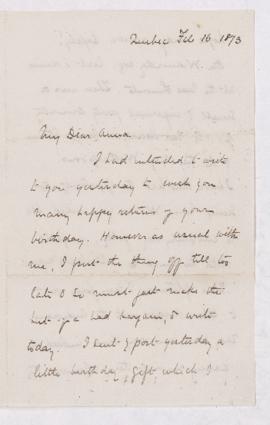 Quebec Feb 16 1873
My Dear Anna
I had intended to write
to you yesterday to wish you
many happy returns of your
birthday. However as usual with
me, I put the thing off till too
late & so must just make the
best of a bad bargain, & write
today. I sent by post yesterday a
little birthday gift which I